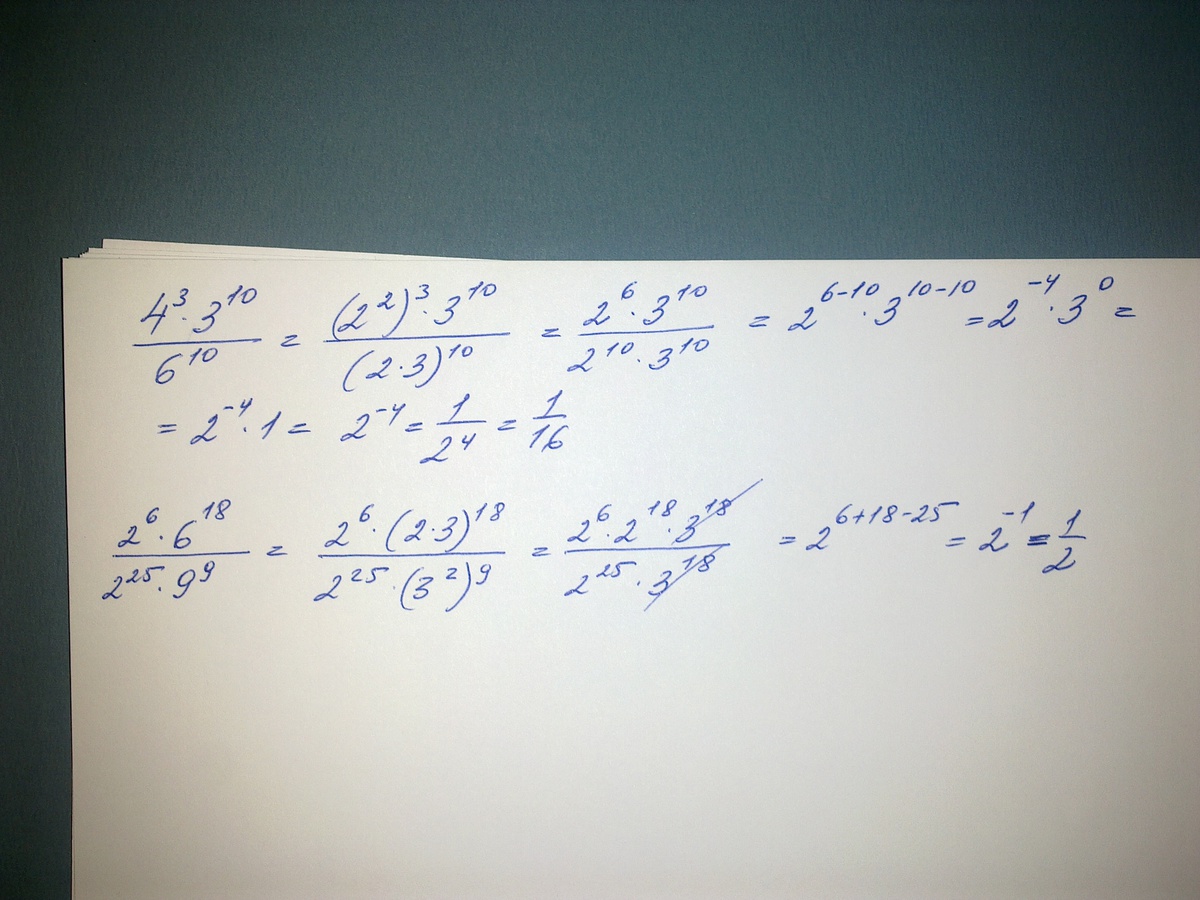 \frac{4^3 \cdot 3^{10}}{6^{10}} = \frac{(2^2)^3 \cdot 3^{10}}{(2 \cdot 3)^{10}} = \frac{2^6 \cdot 3^{10}}{2^{10} \cdot 3^{10}} = 2^{6-10} \cdot 3^{10-10} = 2^{-4} \cdot 3^0 =
= 2^{-4} \cdot 1 = 2^{-4} = \frac{1}{2^4} = \frac{1}{16}
\frac{2^6 \cdot 6^{18}}{2^{25} \cdot 9^9} = \frac{2^6 \cdot (2 \cdot 3)^{18}}{2^{25} \cdot (3^2)^9} = \frac{2^6 \cdot 2^{18} \cdot \cancel{3^{18}}}{2^{25} \cdot \cancel{3^{18}}} = 2^{6+18-25} = 2^{-1} = \frac{1}{2}